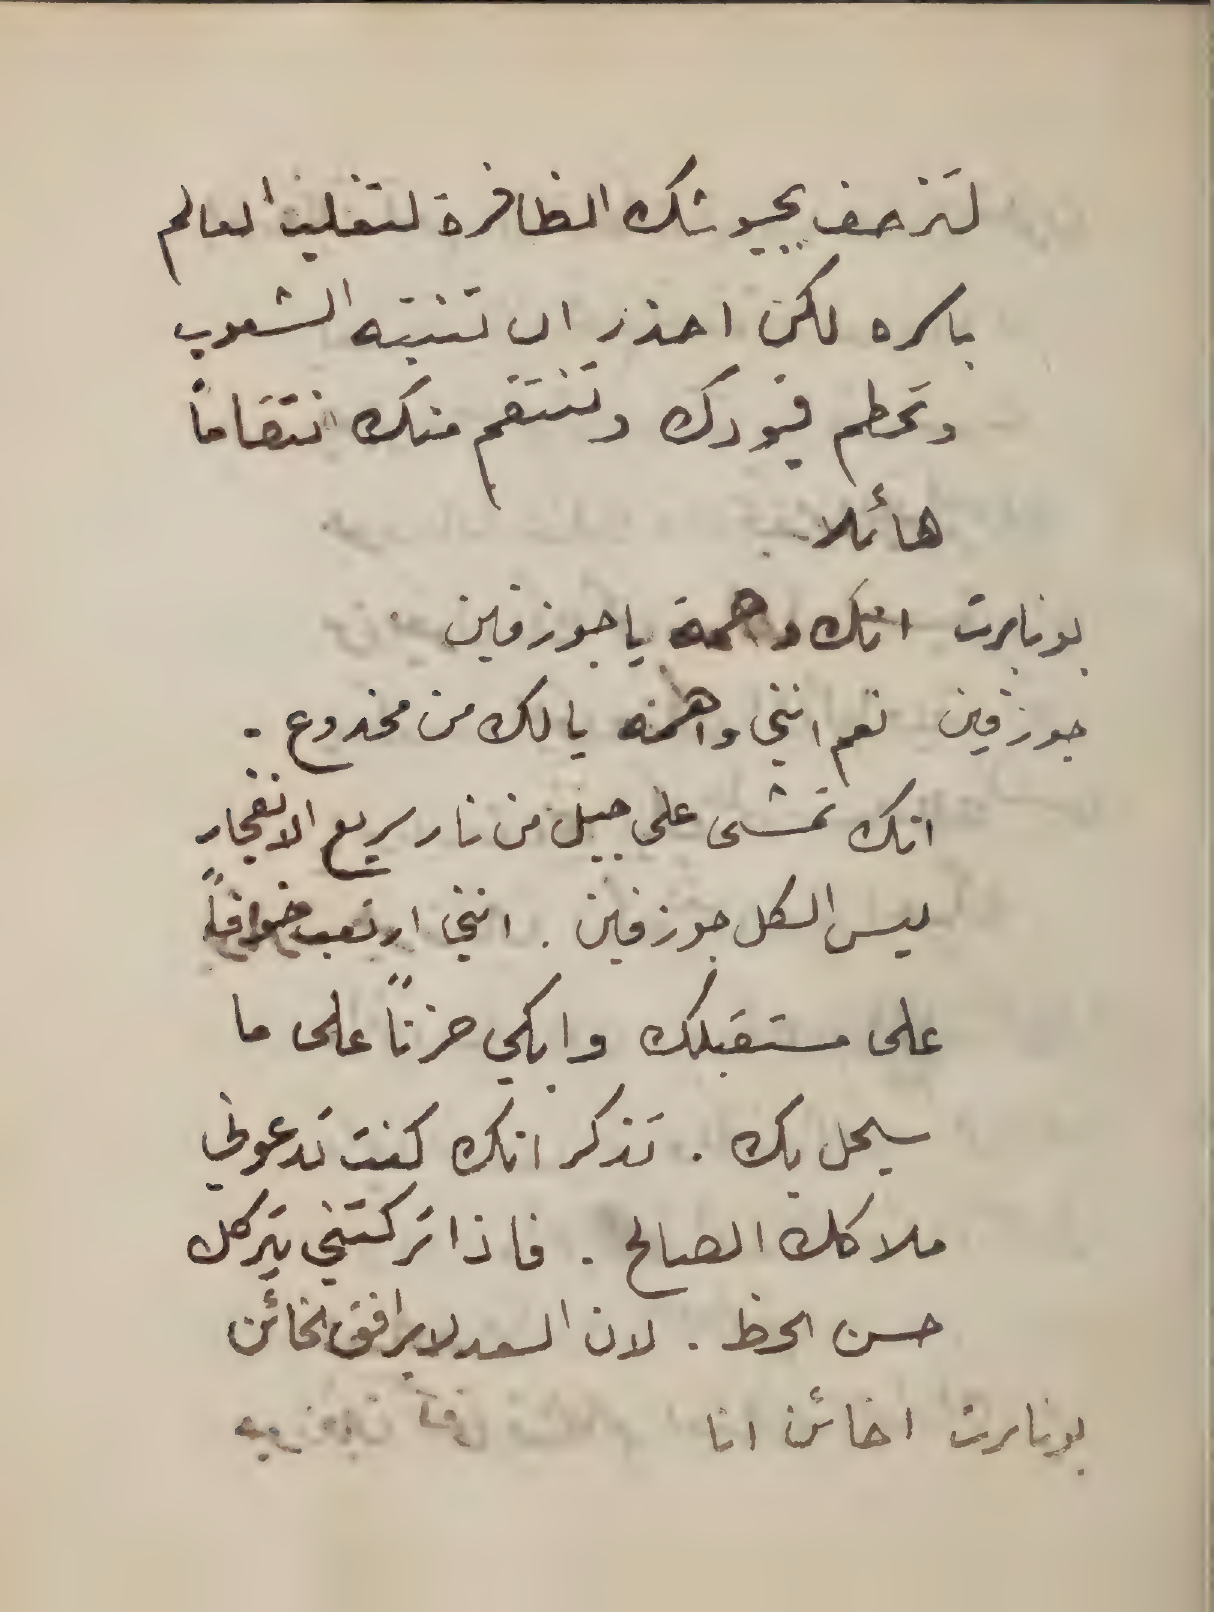 لتزحف بجيوشك الظافرة لتغلب العالم
باسره لكن احذر ان تنتبه الشعوب
وتحطم قيودك وتنتقم منك انتقاماً
هائلا
بونابرت انك وهمة يا جوزفين
جوزفين نعم انني واهمة يا لك من مخدوع .
انك تمشى على جبل من نار سريع الانفجار
ليس الكل جوزفين . انني ارتعب خوفاً
على مستقبلك وابكي حزناً على ما
سيحل بك . تذكر انك كنت تدعوني
ملاكك الصالح . فاذا تركتني يتركك
حسن الحظ . لان السعد لا يرافق الخائن
بونابرت اخائن انا